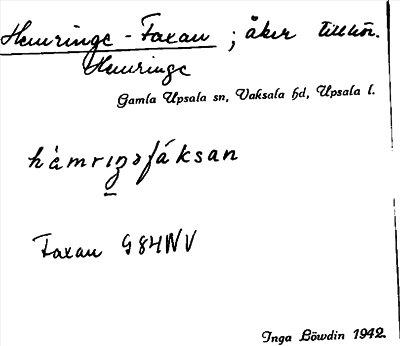 Hemringe - Faxan ; åker tillhör.
Hemringe
Gamla Upsala sn, Vaksala hd, Upsala l.
hàmrıŋəfáksan
Faxan 984NV
Inga Löwdin 1942.